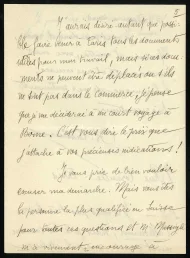 5
J'aurais désiré autant que possi-
ble faire venir à Paris tous les documents
utiles pour mon travail, mais si ces docu-
ments ne peuvent être déplacés ou s'ils
ne sont pas dans le commerce, je pense
que je me déciderai à un court voyage à
Berne. C'est vous dire le prix que
j'attache à vos précieuses indications !
Je vous prie de bien vouloir
excuser ma démarche. Mais vous êtes
la personne la plus qualifiée en Suisse
pour toutes ces questions et M.
m'a vivement encouragé à